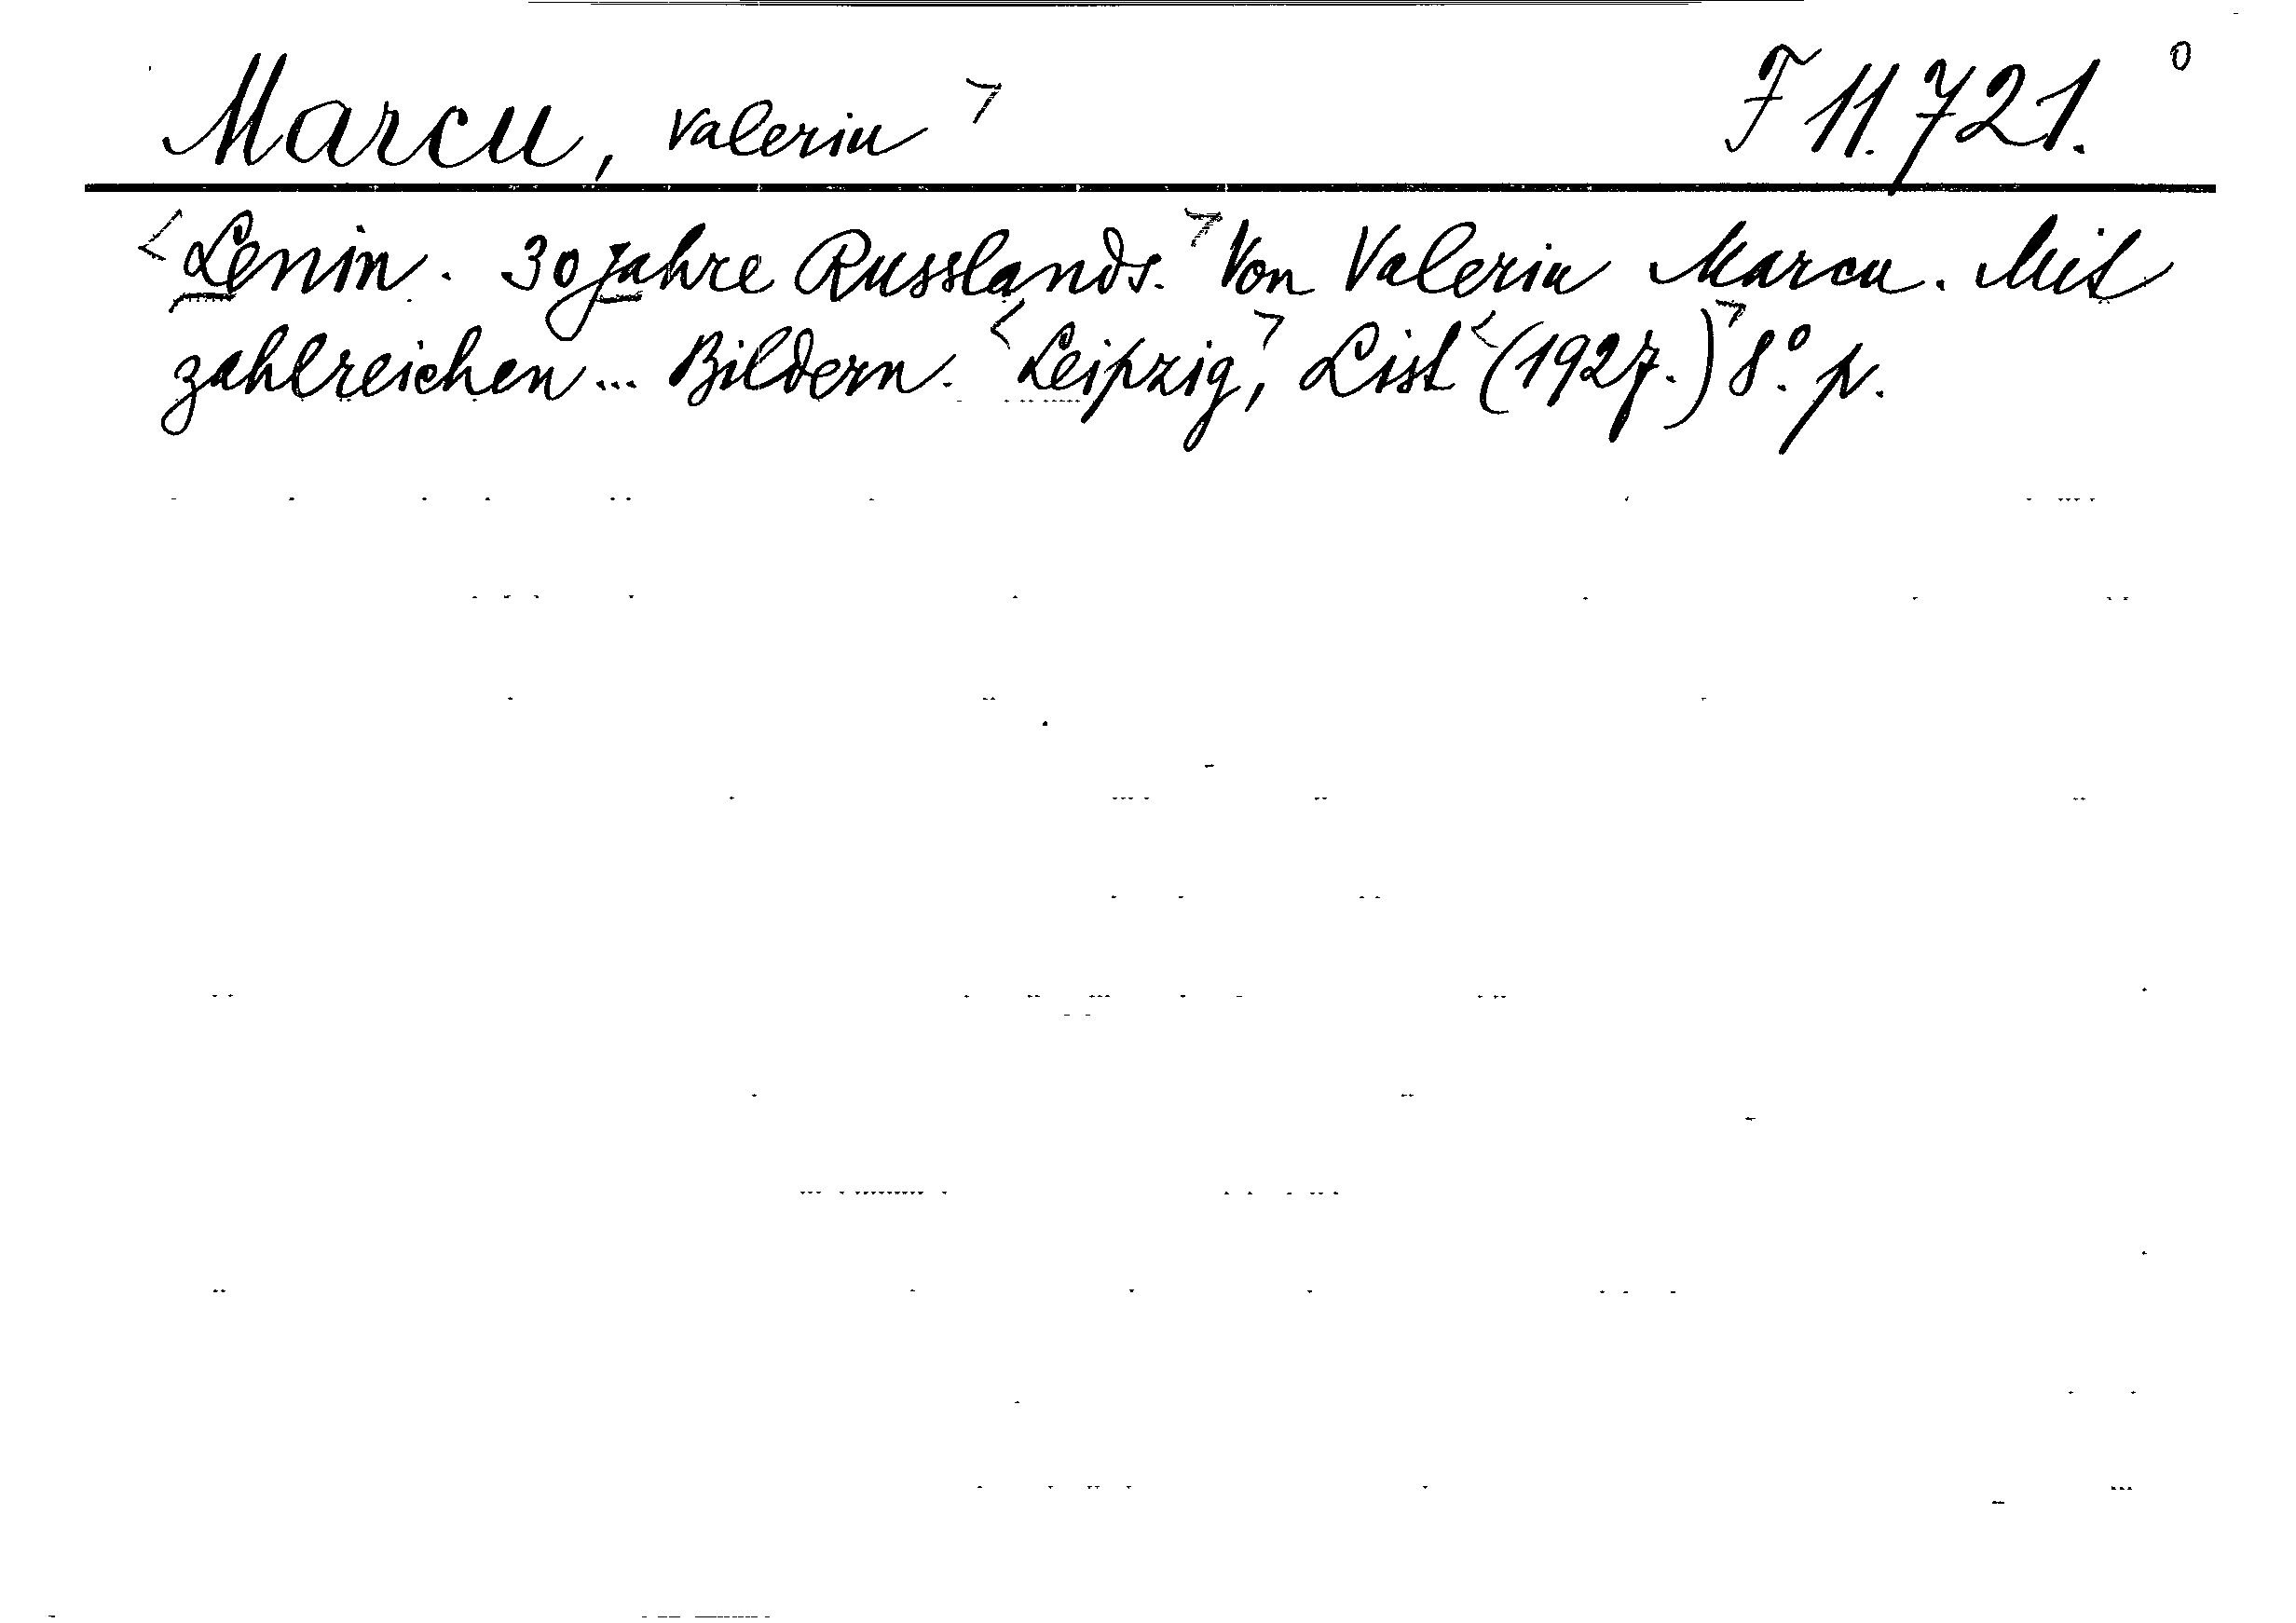 Marcu, Valeriu ⌝ F 11.721. 0
<Lenin. 30 Jahre Russlands.⌝ Von Valeriu Marcu. Mit
zahlreichen... Bildern. <Leipzig⌝, List <(1927.)⌝ 8°. p.